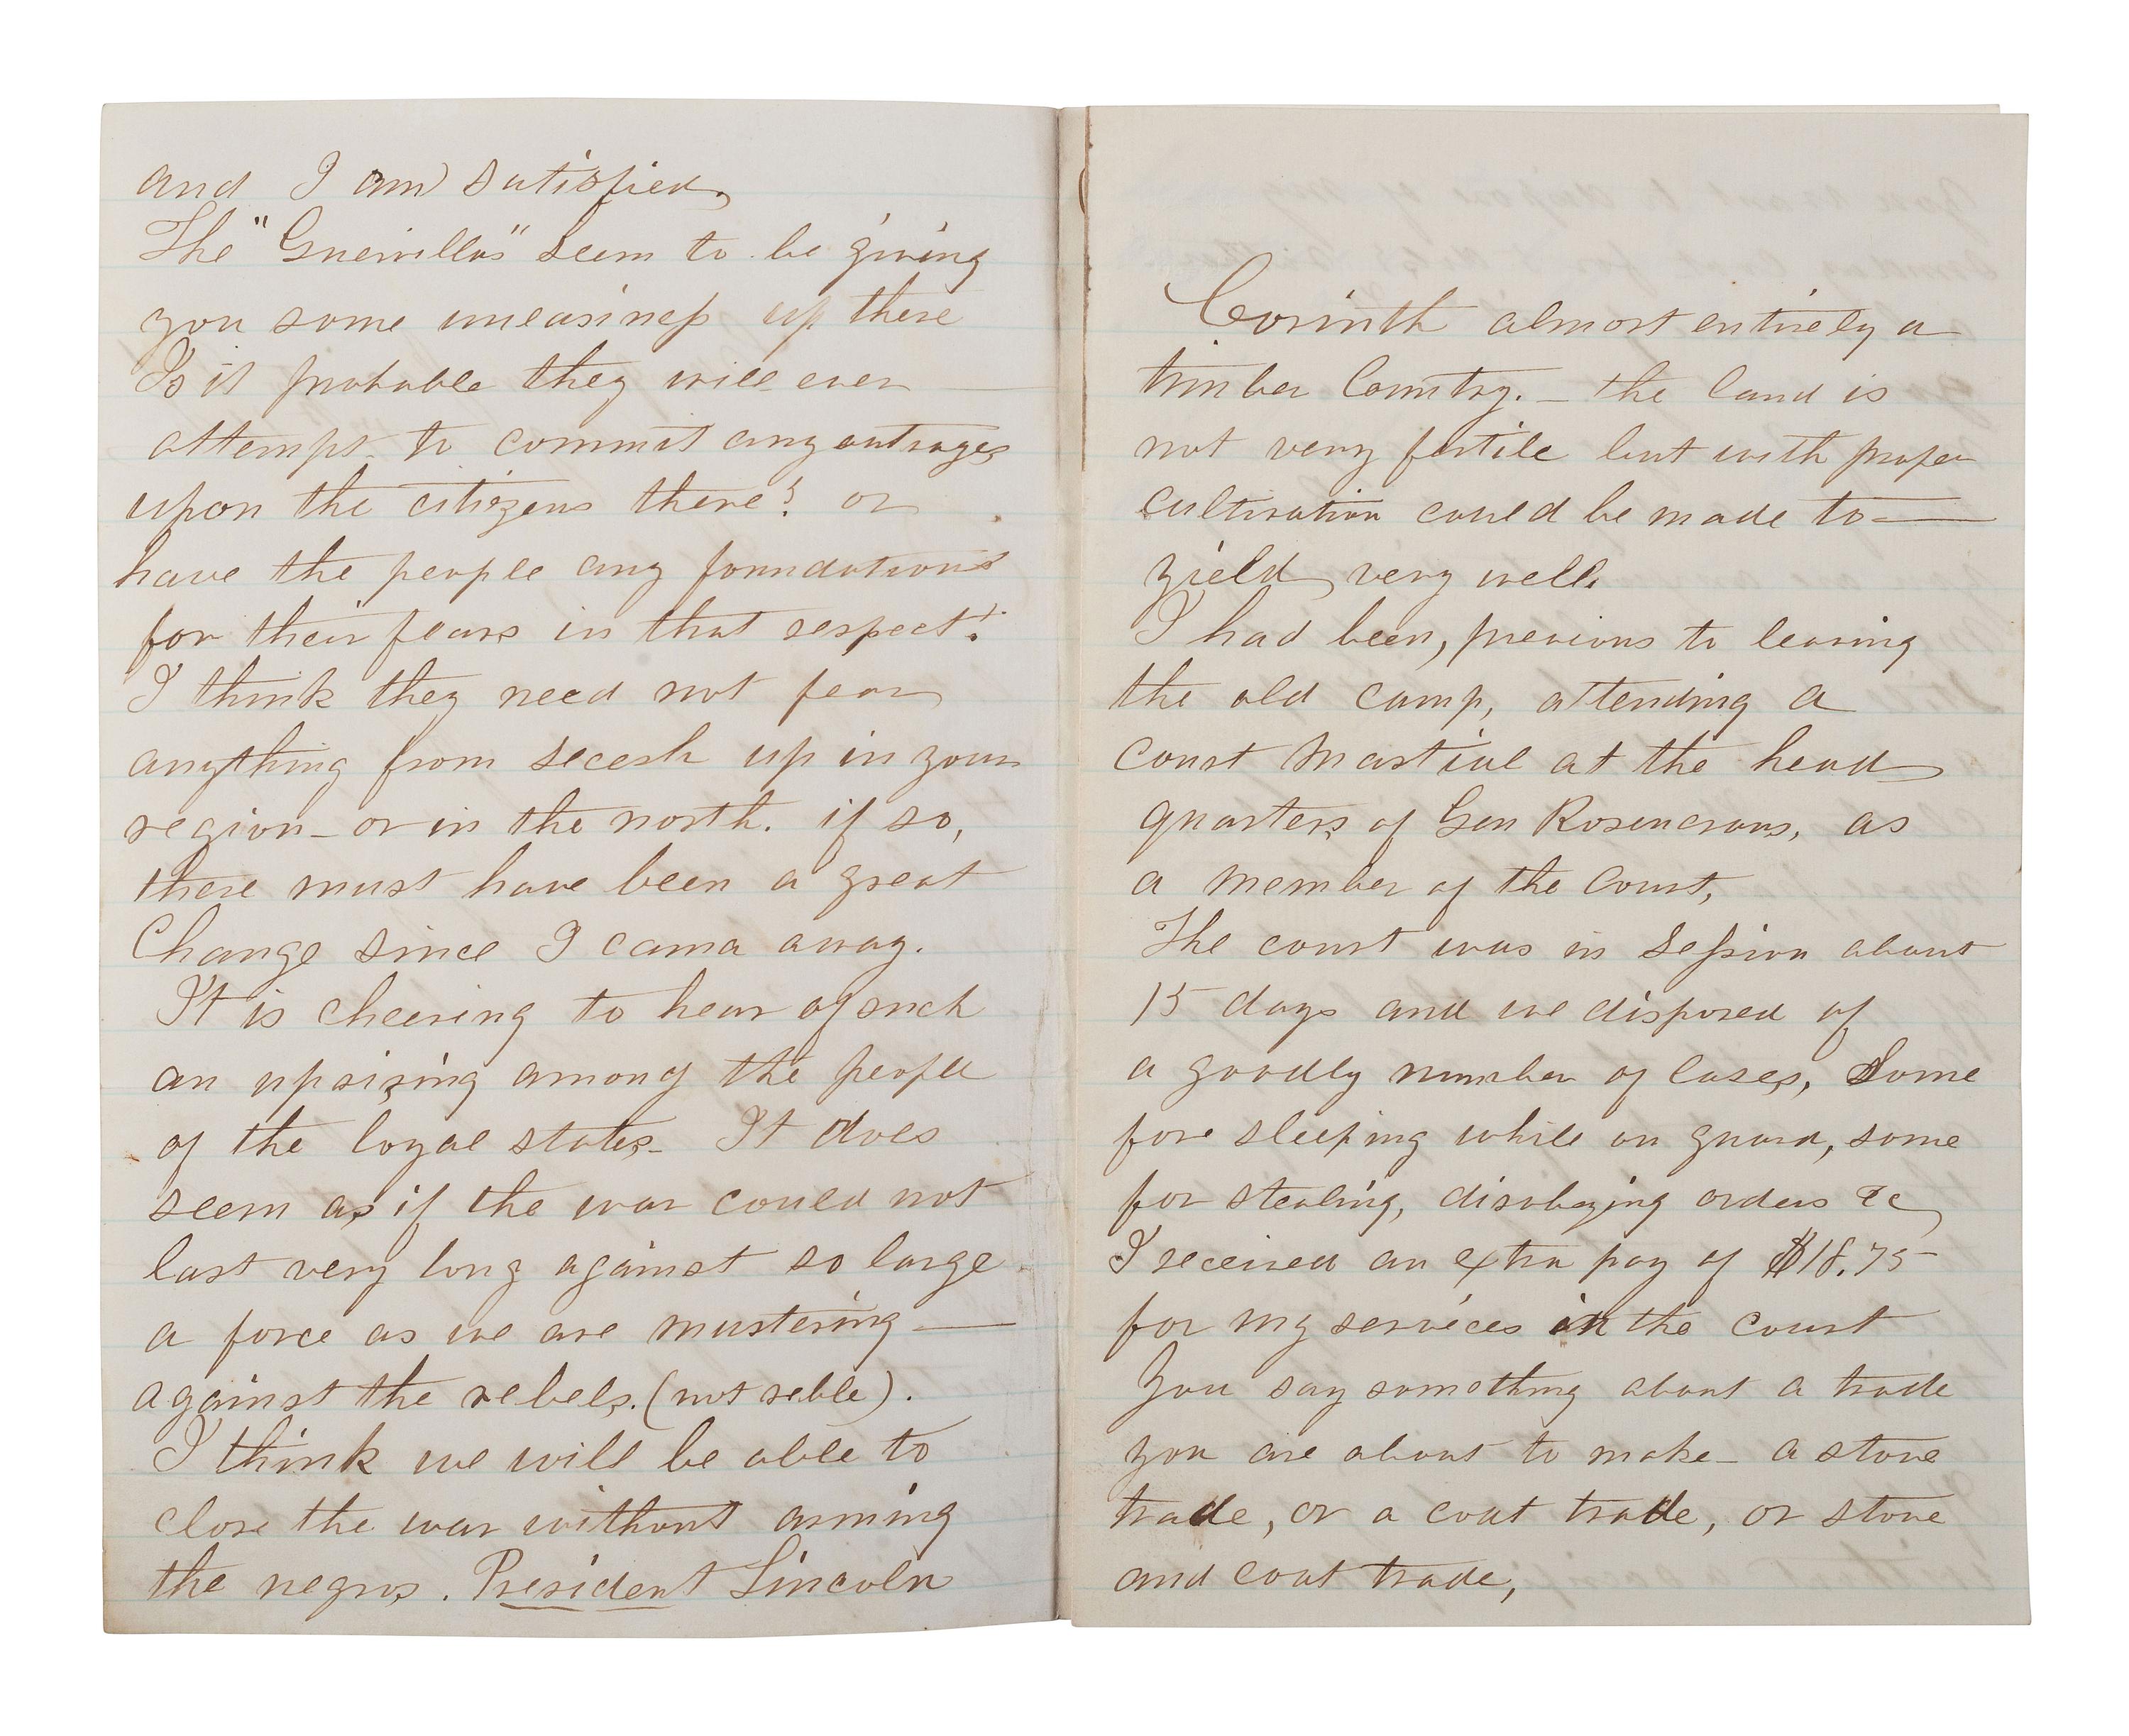 and I am satisfied,
The "Guerrillas" seem to be giving
you some uneasiness up there
Is it probable they will ever
attempt to commit any outrages
upon the citizens there? or
have the people any foundations
for their fears in that respect?
I think they need not fear
anything from secesh up in your
region - or in the north. if so,
there must have been a great
Change since I came away.
It is cheering to hear of such
an uprising among the people
of the loyal states - It does
seem as if the war could not
last very long against so large
a force as we are mustering —
against the rebels. (not reble).
I think we will be able to
close the war without arming
the negros. President Lincoln
Corinth almost entirely a
timber Country. - the land is
not very fertile but with proper
cultivation could be made to —
yield very well.
I had been, previous to leaving
the old camp, attending a
Court Martial at the head
quarters of Gen Rosencrans, as
a member of the Court,
The court was in Session about
15 days and we disposed of
a goodly number of Cases, Some
for sleeping while on guard, some
for stealing, disobeying orders &c
I received an extra pay of $18.75
for my services in the court
You say something about a trade
you are about to make - a stove
trade, or a coat trade, or stove
and coat trade,